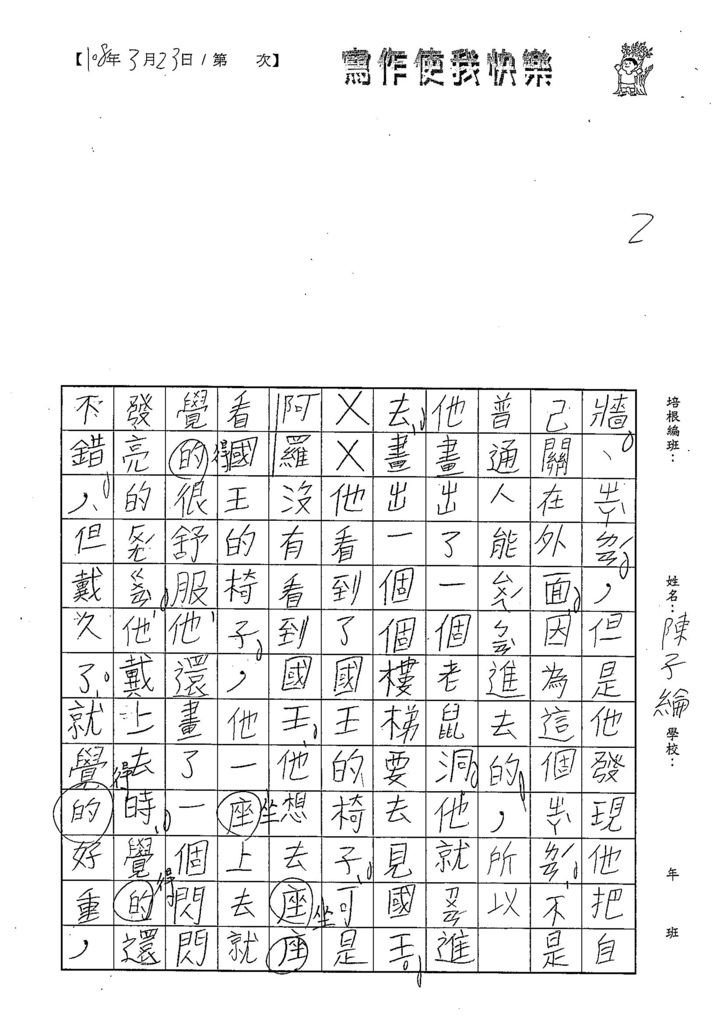 【108年3月23日/第 次】
寫作使我快樂
2
培根編班：
姓名：陳子綸
學校：
年 班
牆。、ㄓㄚ ㄌㄢ，但是他發現他把自
己關在外面，因為這個ㄓㄚ ㄌㄢ，不是
普通人能進去的，所以
他畫出了一個老鼠洞，他就進
去，畫出一個個樓梯要去見國王。
ㄨㄨ他看到了國王的椅子，可是
阿羅沒有看到國王，他想去座座坐
看國王的椅子，他一座坐上去就
覺的得很舒服，他還畫了一個閃閃
發亮的，他戴上去時，覺的得還
不錯，但戴久了，就覺的得好重，